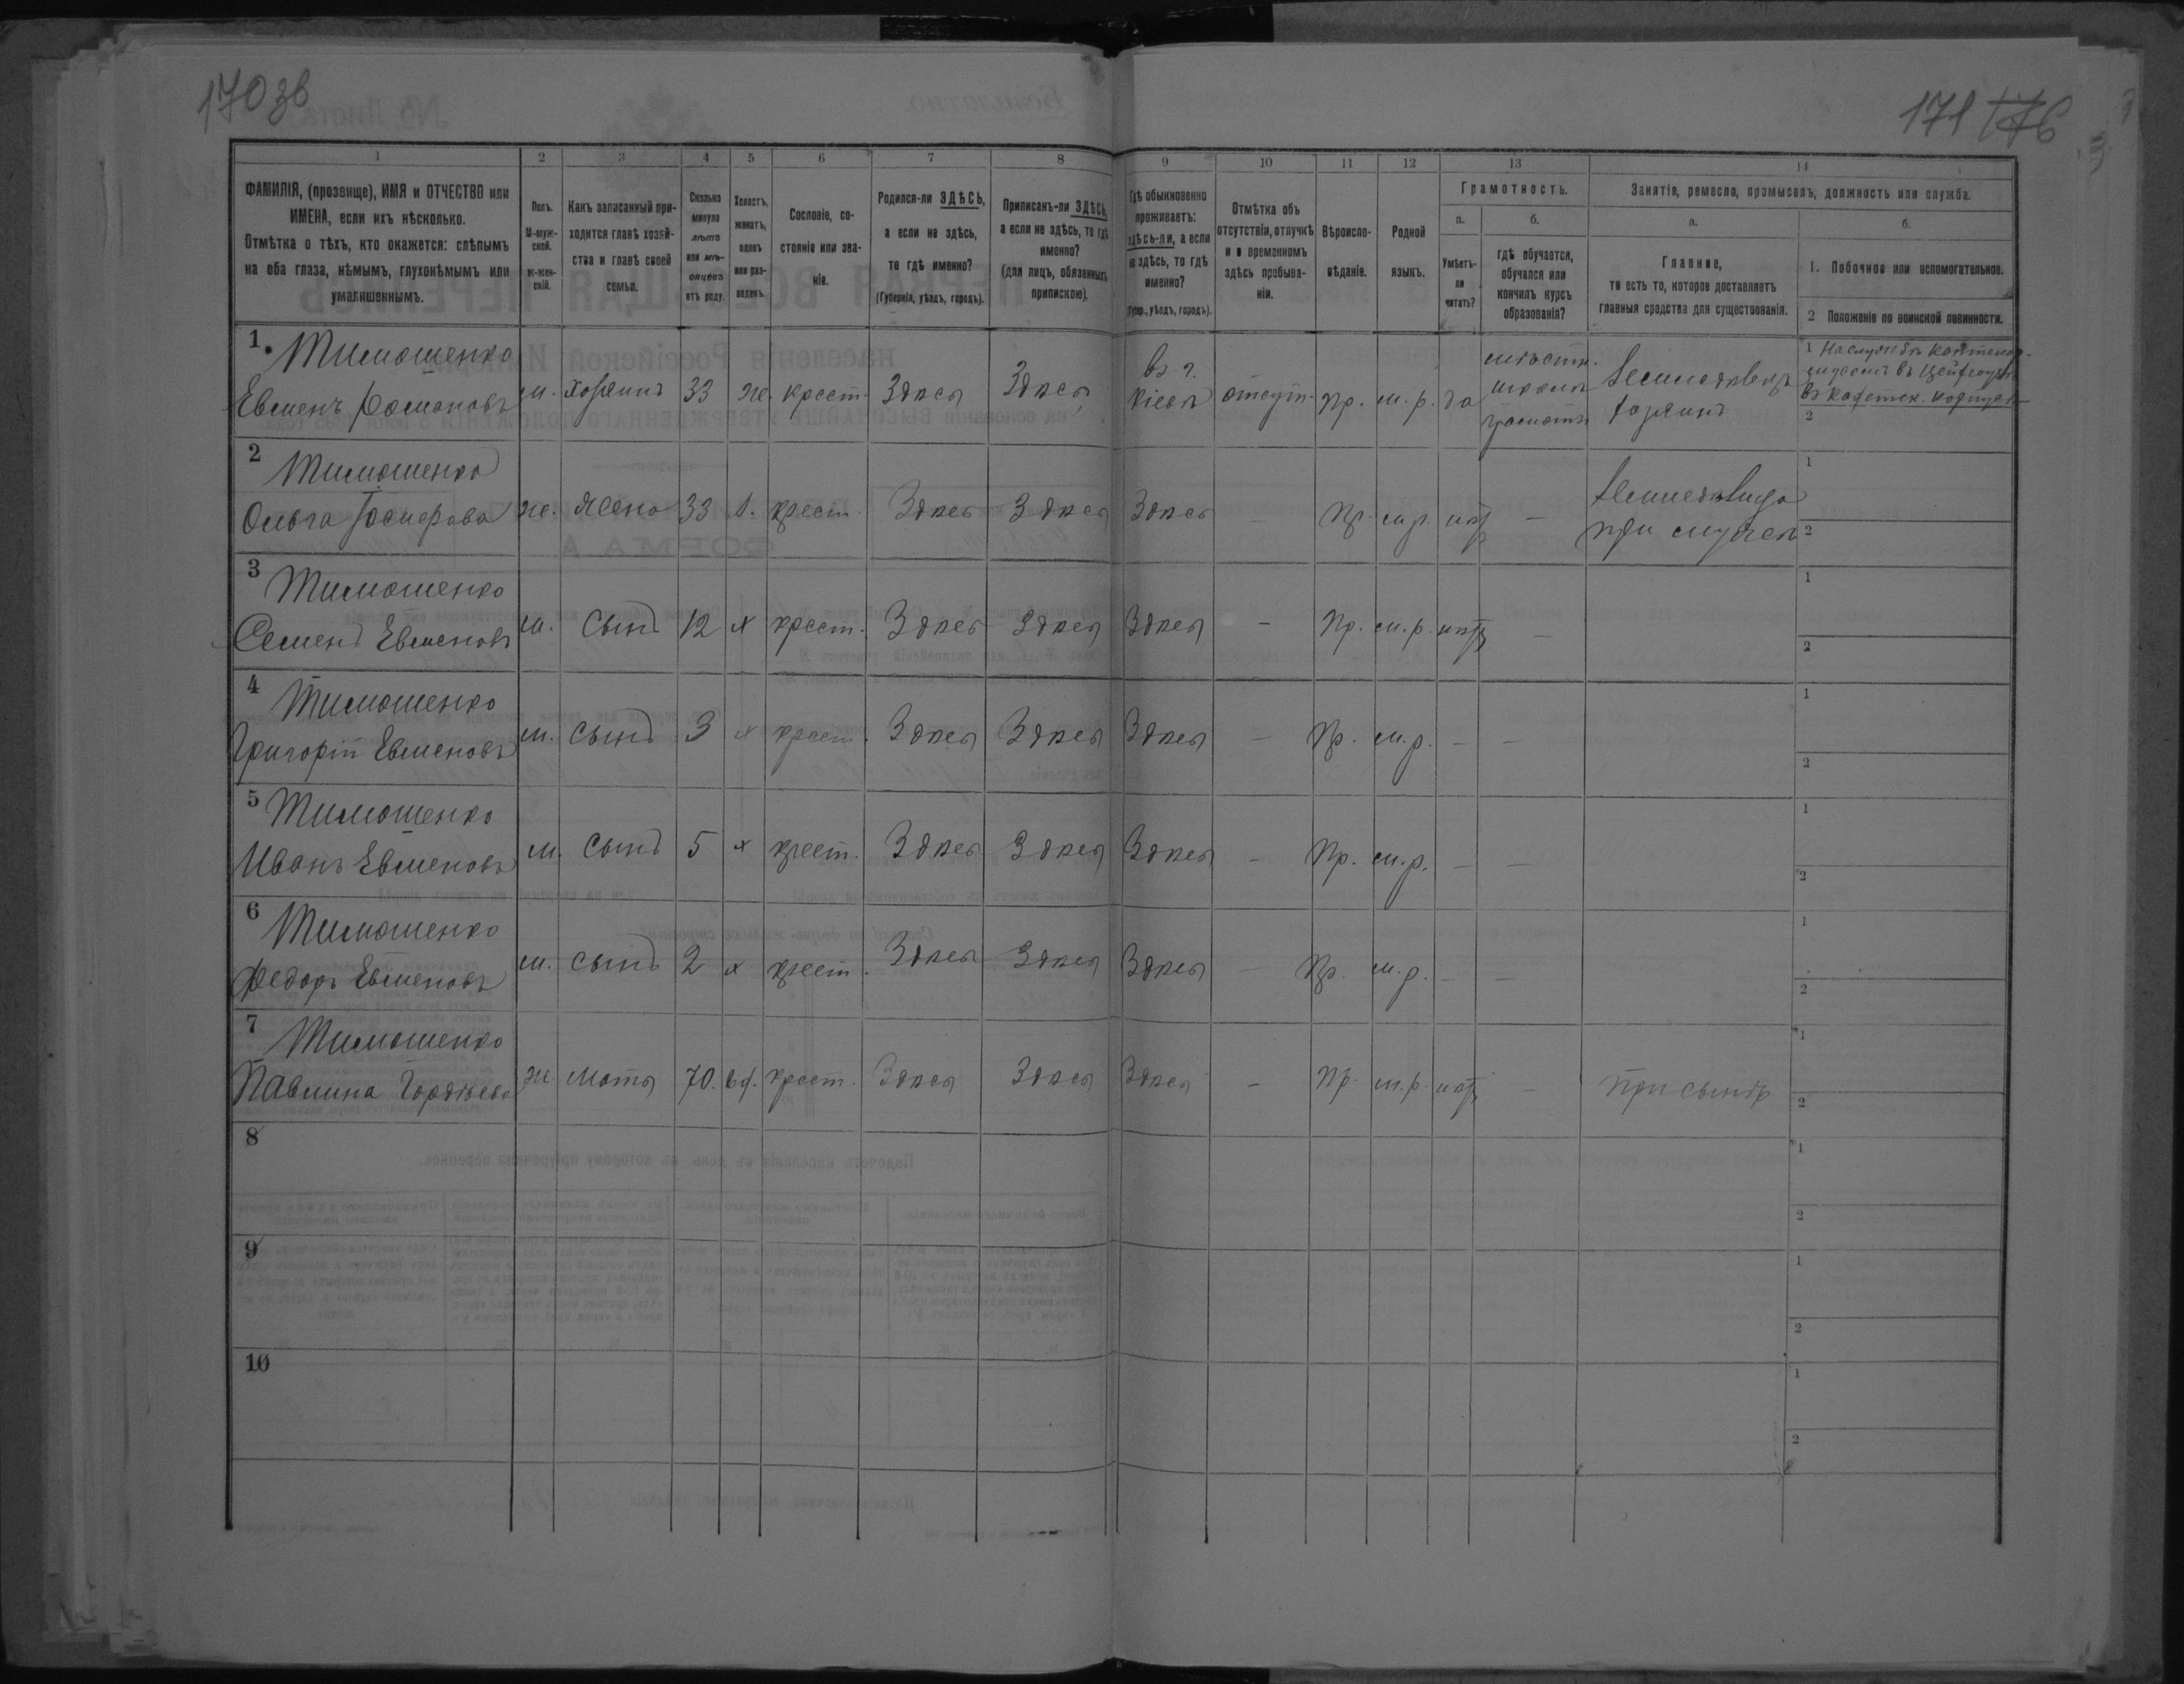 170 зв
171 176
1 2 3 4 5 6 7 8 9 10 11 12 13 14
ФАМИЛІЯ, (прозвище), ИМЯ и ОТЧЕСТВО или
ИМЕНА, если ихъ нѣсколько.
Отмѣтка о тѣхъ, кто окажется: слѣпымъ
на оба глаза, нѣмымъ, глухонѣмымъ или
умалишеннымъ.
Полъ.
М-муж-
ской.
ж-жен-
скій.
Какъ записанный при-
ходится главѣ хозяй-
ства и главѣ своей
семьи.
Сколько
минуло
лѣтъ
или мѣ-
сяцевъ
отъ роду.
Холостъ,
женатъ,
вдовъ
или раз-
веденъ.
Сословіе, со-
стояніе или зва-
ніе.
Родился-ли ЗДѢСЬ,
а если не здѣсь,
то гдѣ именно?
(Губернія, уѣздъ, городъ).
Приписанъ-ли ЗДѢСЬ,
а если не здѣсь, то гдѣ
именно?
(для лицъ, обязанныхъ
припискою).
Гдѣ обыкновенно
проживаетъ:
здѣсь-ли, а если
не здѣсь, то гдѣ
именно?
(Губер., уѣздъ, городъ).
Отмѣтка объ
отсутствіи, отлучкѣ
и о временномъ
здѣсь пребыва-
ніи.
Вѣроиспо-
вѣданіе.
Родной
языкъ.
Грамотность.
а.
Умѣетъ-
ли
читать?
б.
гдѣ обучается,
обучался или
кончилъ курсъ
образованія?
Занятіе, ремесло, промыселъ, должность или служба.
а.
Главное,
то есть то, которое доставляетъ
главныя средства для существованія.
б.
1. Побочное или вспомогательное.
2 Положеніе по воинской повинности.
1. Тимошенко
Евменъ Романовъ м. хозяинъ 33 же. крест. Здѣсь Здѣсь въ г. Кіевѣ отсут. пр. м.р. да
школѣ
грамотѣ
Земледѣлецъ
хозяинъ
1
2
2 Тимошенко
Ольга ж. жена 33 з. крест. Здѣсь Здѣсь Здѣсь – пр. м.р. нѣтъ –
при мужѣ
1
2
3 Тимошенко
Семенъ Евменовъ м. сынъ 12 х крест. Здѣсь Здѣсь Здѣсь – пр. м.р. нѣтъ –
1
2
4 Тимошенко
Григорій Евменовъ м. сынъ 3 х крест. Здѣсь Здѣсь Здѣсь – пр. м.р. – –
1
2
5 Тимошенко
Иванъ Евменовъ м. сынъ 5 х крест. Здѣсь Здѣсь Здѣсь – пр. м.р. – –
1
2
6 Тимошенко
Федоръ Евменовъ м. сынъ 2 х крест. Здѣсь Здѣсь Здѣсь – пр. м.р. – –
1
2
7 Тимошенко
Павлина Гордѣева ж. мать 70. вд. крест. Здѣсь Здѣсь Здѣсь – пр. м.р. нѣтъ – при сынѣ
1
2
8
1
2
9
1
2
10
1
2